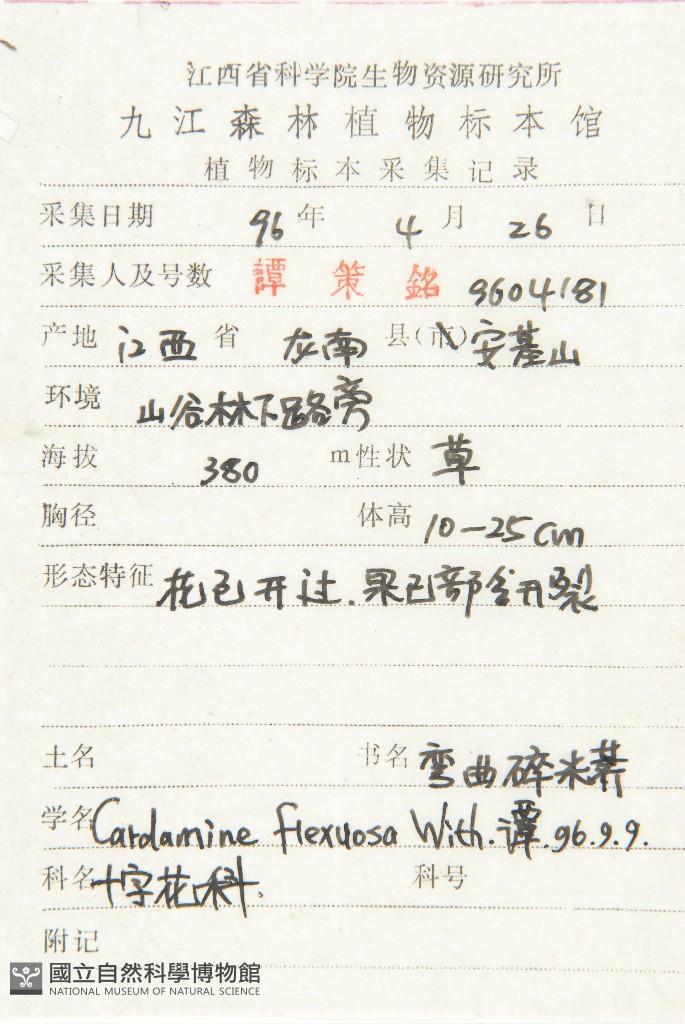 江西省科学院生物资源研究所
九江森林植物标本馆
植物标本采集记录
采集日期 96年 4月 26日
采集人及号数 譚策銘 9604181
产地 江西 省 龙南 县(市) 安基山
环境 山谷林下路旁
海拔 380 m 性状 草
胸径 体高 10-25cm
形态特征 花已开过.果已部分开裂
土名 书名 弯曲碎米荠
学名 Cardamine flexuosa With. 谭.96.9.9.
科名 十字花科. 科号
附记
國立自然科學博物館
NATIONAL MUSEUM OF NATURAL SCIENCE